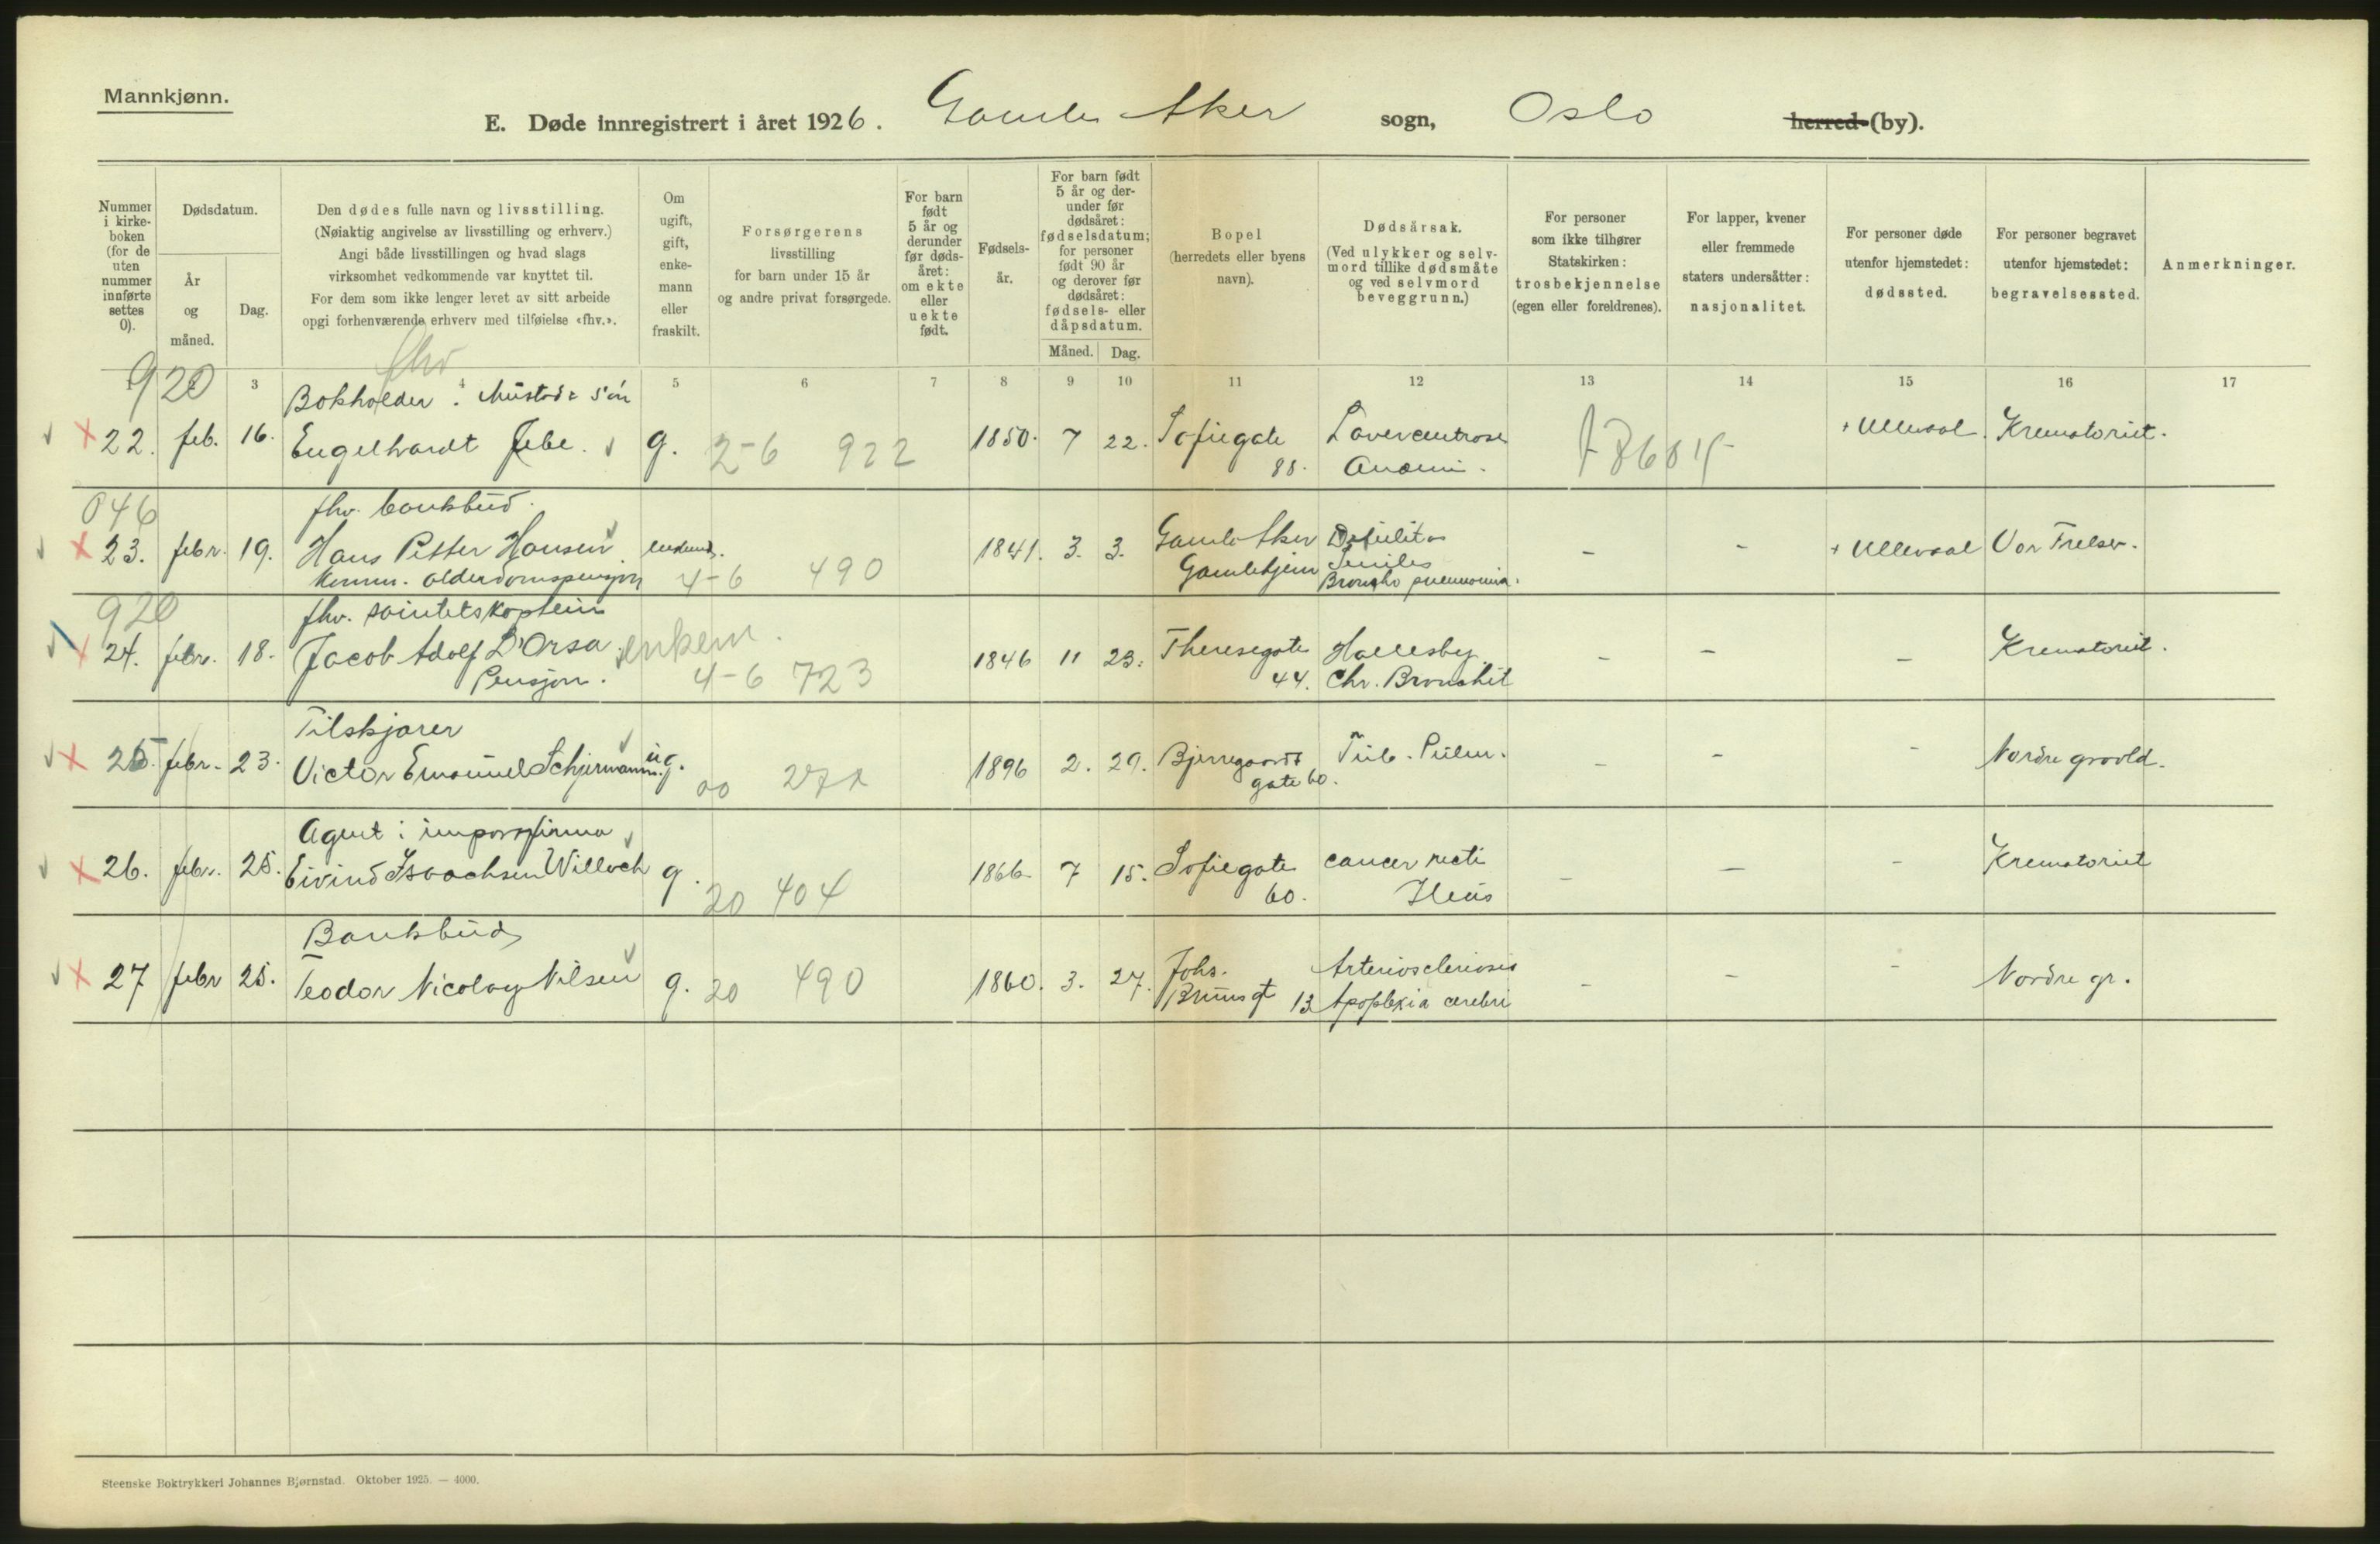 Mannkjønn.
E. Døde innregistrert i året 1926. Gamle Aker sogn, Oslo herred (by).
Nummer i kirkeboken (for de uten nummer innførte settes 0).
Dødsdatum.
År og måned.
Dag.
Den dødes fulle navn og livsstilling.
(Nøiaktig angivelse av livsstilling og erhverv.)
Angi både livsstillingen og hvad slags
virksomhet vedkommende var knyttet til.
For dem som ikke lenger levet av sitt arbeide
opgi forhenværende erhverv med tilføielse «fhv.».
Om ugift, gift, enkemann eller fraskilt.
Forsørgerens
livsstilling
for barn under 15 år
og andre privat forsørgede.
For barn født 5 år og derunder før dødsåret: om ekte eller uekte født.
Fødselsår.
For barn født 5 år og derunder før dødsåret: fødselsdatum; for personer født 90 år og derover før dødsåret: fødsels- eller dåpsdatum.
Måned. Dag.
Bopel
(herredets eller byens
navn).
Dødsårsak.
(Ved ulykker og selvmord tillike dødsmåte og ved selvmord beveggrunn.)
For personer
som ikke tilhører
Statskirken:
trosbekjennelse
(egen eller foreldrenes).
For lapper, kvener
eller fremmede
staters undersåtter:
nasjonalitet.
For personer døde
utenfor hjemstedet:
dødssted.
For personer begravet
utenfor hjemstedet:
begravelsessted.
Anmerkninger.
3 4 5 6 7 8 9 10 11 12 13 14 15 16 17
920 fhv
Bokholder. Mustad & Søn
22. feb. 16. Engelhardt Jebe. g. 2-6 922 1850. 7 22. Sofiegate 88. Anæmi. + Ullevaal. Krematoriet.
046 fhv. bankbud.
23. febr. 19. Hans Petter Hansen 4-6 490 1841. 3. 3. Gamle Aker Gamlehjem Debilitas Seniles Broncho pneumonia. - - + Ullevaal Vor Frelser.
Komm. alderdomspensjon
920 fhv.
24. febr. 18. Jacob Adolf D'Orsa enkem. 4-6 723 1846 11 23. Theresegate 44. Chr. Bronchit - - - Krematoriet.
Pensjon.
Tilskjærer
25. febr. 23. Victor Emanuel Schjermann. ug. 00 1896 2. 29. Bjerregaards gate 60. Tub. Pulm. - - - Nordre gravld.
Agent i importfirma
26. febr. 25. Eivind Isaachsen Willoch g. 20 404 1866. 7 15. Sofiegate 60. cancer recti Ileus - - - Krematoriet
Bankbud
27 febr 25. Teodor Nicolay Nilsen g. 20 490 1860. 3. 27. Johs. Bruns gt 13 Arteriosclerosis Apoplexia cerebri - - - Nordre gr.
Steenske Boktrykkeri Johannes Bjørnstad. Oktober 1925. — 4000.